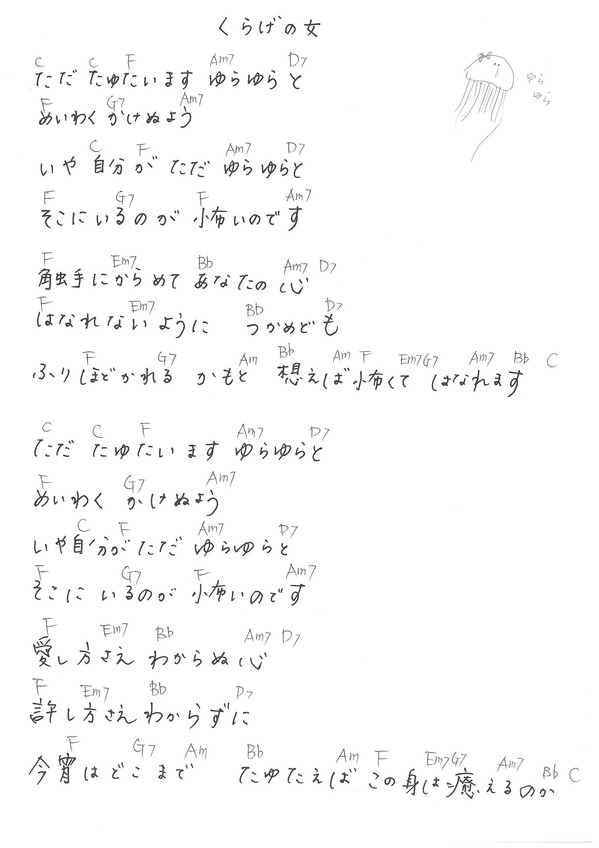 くらげの女
ゆら
ゆら
C C F Am7 D7
ただ たゆたいます ゆらゆらと
F G7 Am7
めいわく かけぬよう
C F Am7 D7
いや 自分が ただ ゆらゆらと
F G7 F Am7
そこにいるのが 怖いのです
F Em7 Bb Am7 D7
触手にからめて あなたの心
F Em7 Bb D7
はなれないように つかめども
F G7 Am Bb Am F Em7 G7 Am7 Bb C
ふりほどかれる かもと 想えば 怖くて はなれます
C C F Am7 D7
ただ たゆたいます ゆらゆらと
F G7 Am7
めいわく かけぬよう
C F Am7 D7
いや自分が ただ ゆらゆらと
F G7 F Am7
そこに いるのが 怖いのです
F Em7 Bb Am7 D7
愛し方さえ わからぬ心
F Em7 Bb D7
許し方さえわからずに
F G7 Am Bb Am F Em7 G7 Am7 Bb C
今宵はどこまで たゆたえば この身は癒えるのか